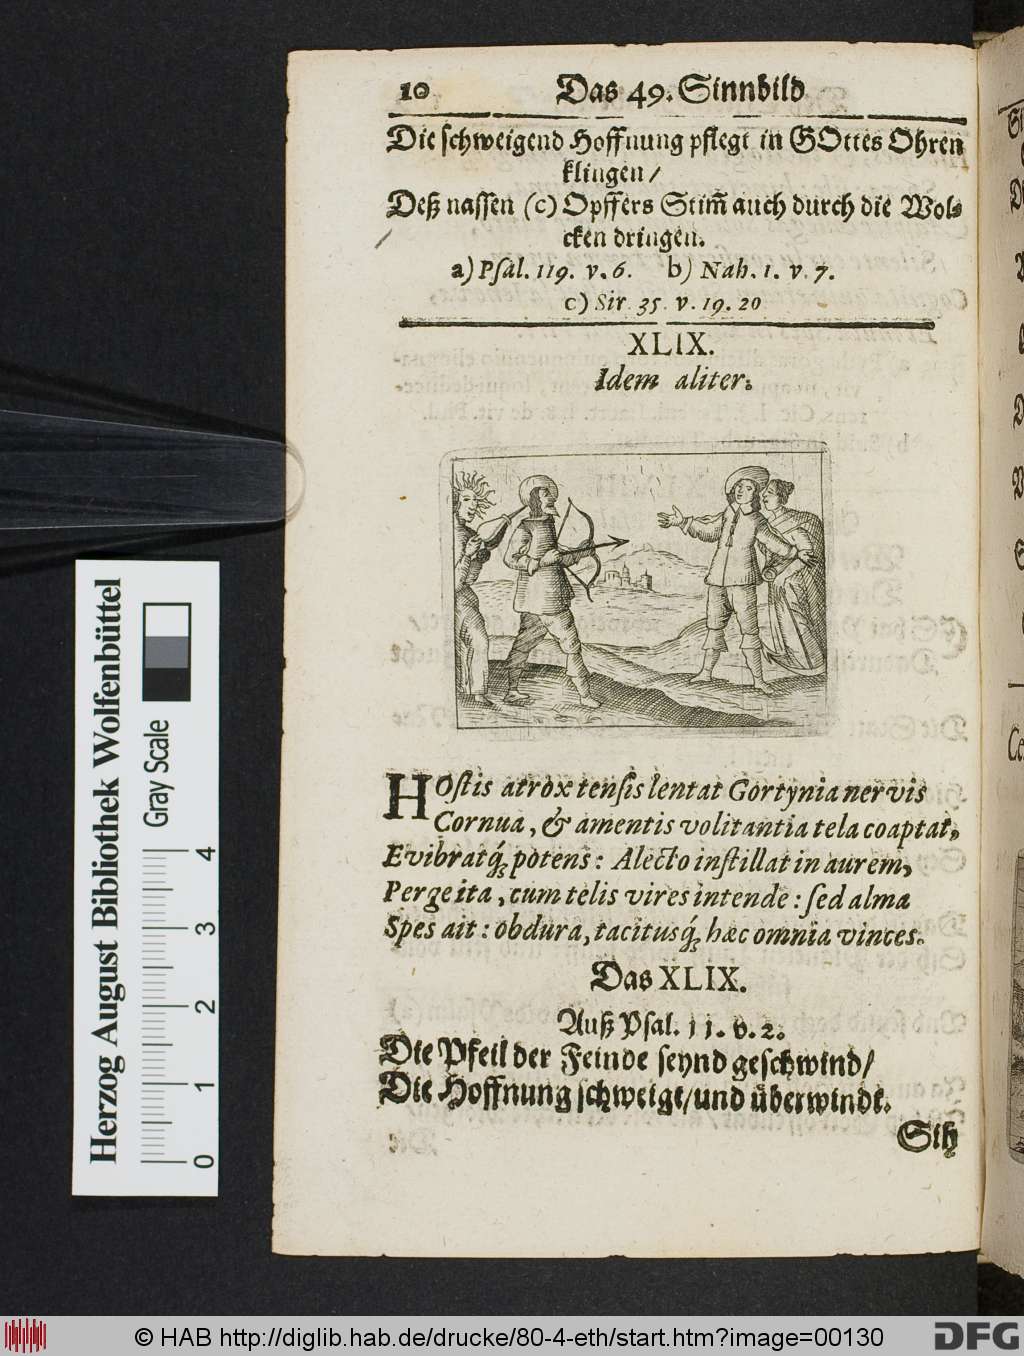 10 Das 49. Sinnbild
Die schweigend Hoffnung pflegt in GOttes Ohren
klingen/
Deß nassen (c) Opffers Stim̃ auch durch die Wol-
cken dringen.
a) Psal. 119. v. 6. b) Nah. 1. v. 7.
c) Sir. 35. v. 19. 20
XLIX.
Idem aliter.
HOstis atrox tensis lentat Gortynia nervis
Cornua, & amentis volitantia tela coaptat,
Evibratq́; potens: Alecto instillat in aurem,
Perge ita, cum telis vires intende: sed alma
Spes ait: obdura, tacitusq́; hæc omnia vinces.
Das XLIX.
Auß Psal. 11. v. 2.
Die Pfeil der Feinde seynd geschwind/
Die Hoffnung schweigt/und überwindt.
Sih
Herzog August Bibliothek Wolfenbüttel
Gray Scale
0 1 2 3 4
© HAB http://diglib.hab.de/drucke/80-4-eth/start.htm?image=00130
DFG